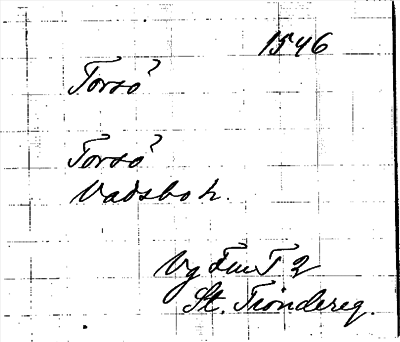 1546
Torsö
Torsö
Vadsbo h.
Vg Fru T 2
St. Tröndereg.